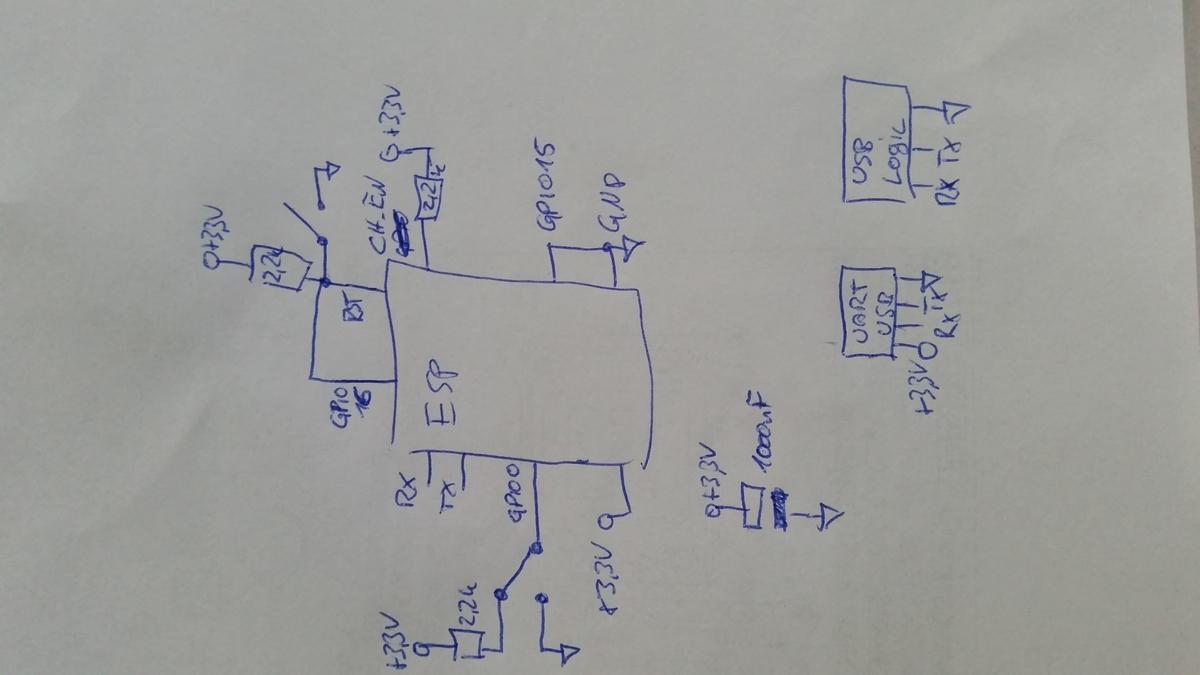 +3,3V
2,2k
RST
GPIO
16
CH_EN
+3,3V
2,2
k
GPIO15
GND
ESP
RX
TX
GPIO0
+3,3V
2,2k
+3,3V
+3,3V
USB
LOGIC
RX
TX
UART
USB
+3,3V
RX
TX